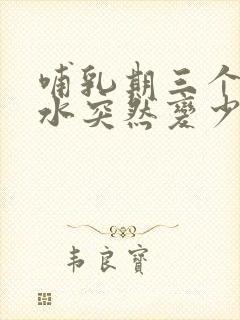 哺乳期三个
水突然变少
韦良宝